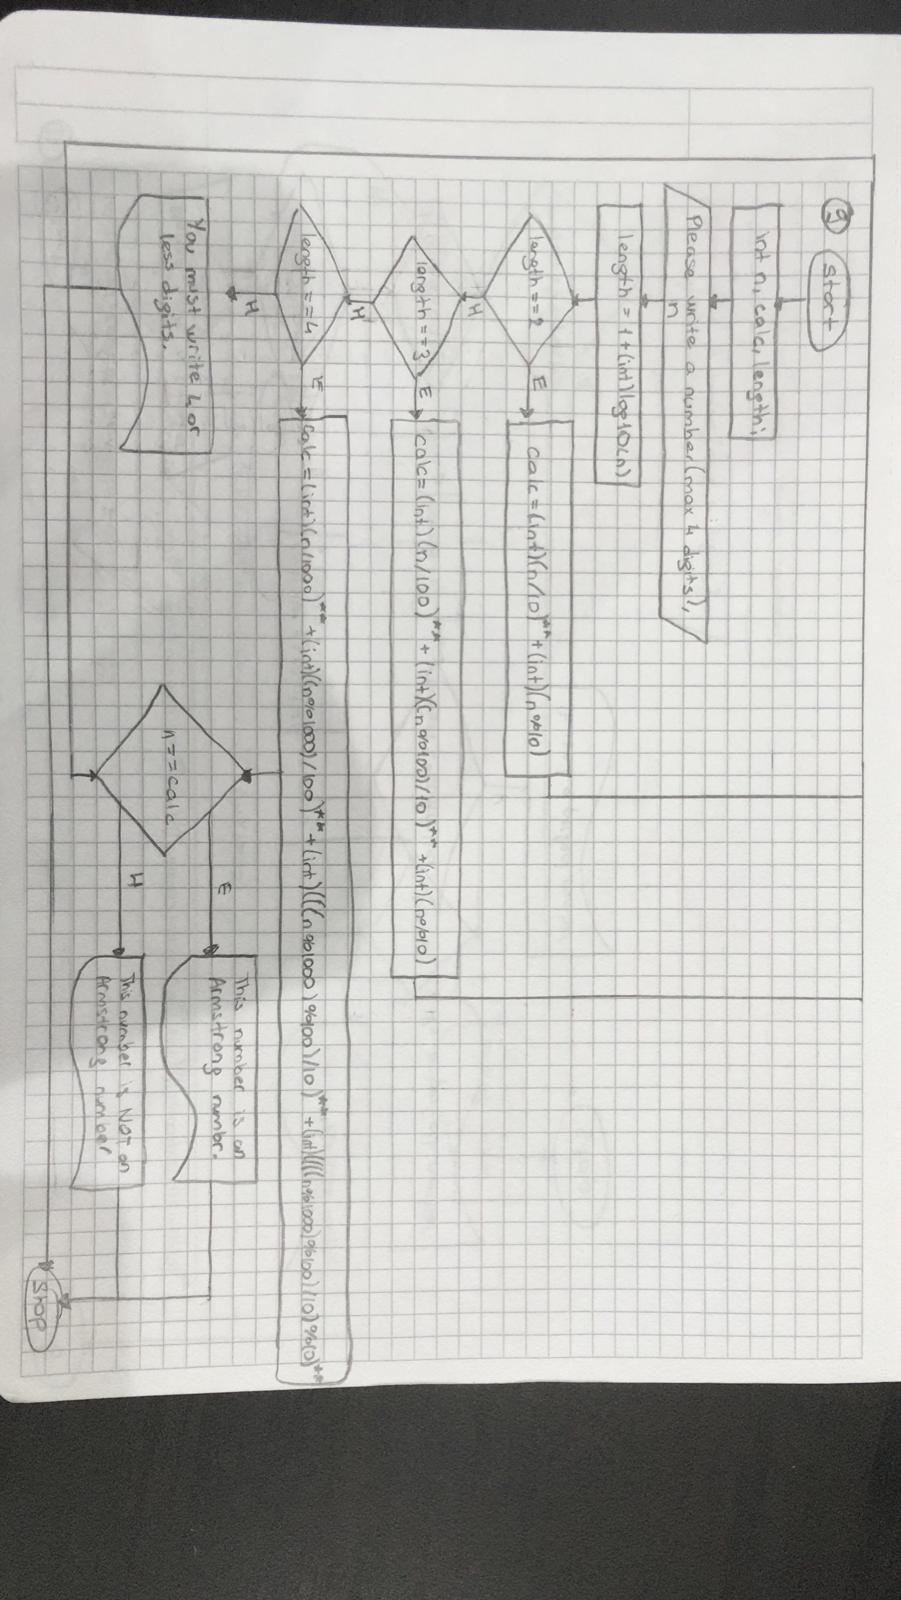 9
Start
int n, calc, length;
Please write a number (max 4 digits),
n
length = 1 + (int) log10(n)
length == 2
E
calc = (int)(n/10)** + (int)(n%10)
H
length == 3
E
calc = (int)(n/100)** + (int)((n%100)/10)** + (int)(n%10)
H
length == 4
E
calc = (int)(n/1000)** + (int)((n%1000)/100)** + (int)(((n%1000)%100)/10)** + (int)((((n%1000)%100)/10)%10)**
H
You must write 4 or
less digits.
n == calc
E
This number is an
Armstrong numbr.
H
This number is NOT an
Armstrong number
Stop